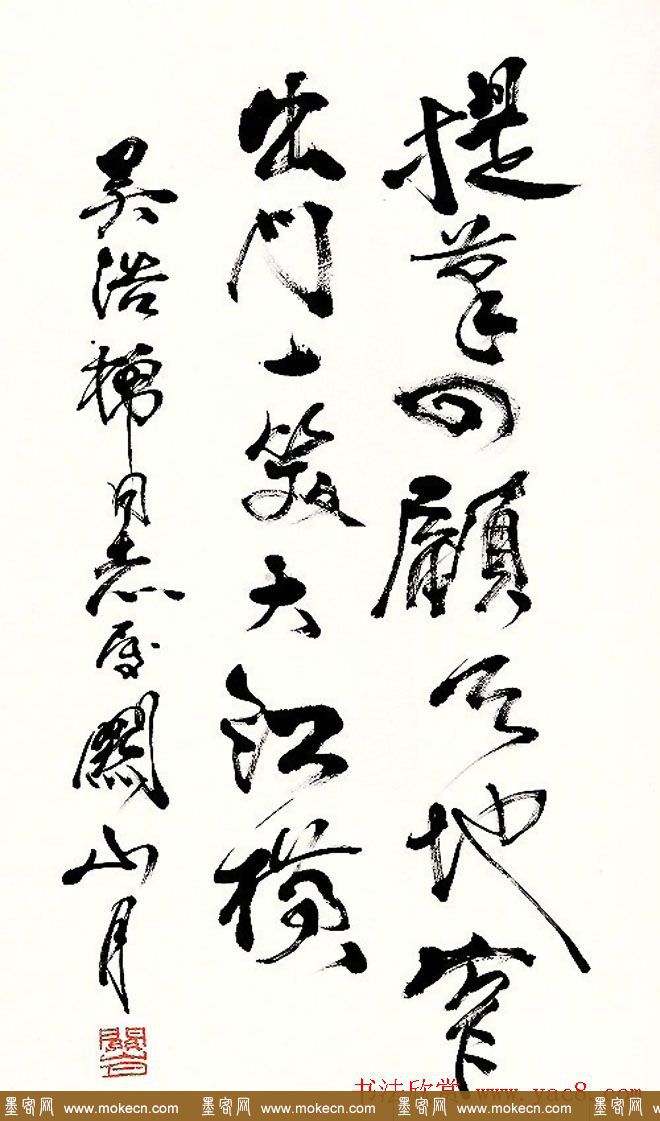 提筆四顧天地窄
出門一笑大江橫
吴浩同志属關山月
书法欣赏 www.yac8.com
墨客网 www.mokecn.com 墨客网 www.mokecn.com 墨客网 www.mokecn.com 墨客网